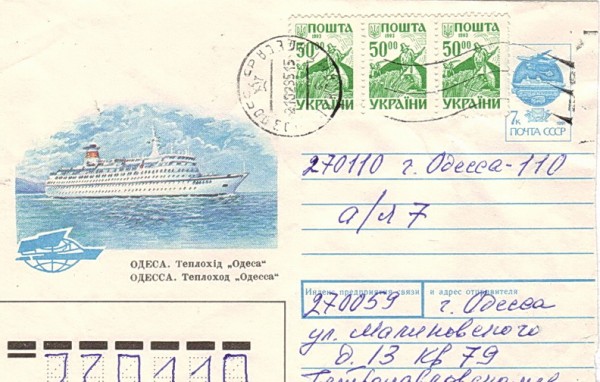 ПОШТА ПОШТА ПОШТА
1992 1993 1993
50.00 50.00 50.00
УКРАЇНИ УКРАЇНИ УКРАЇНИ
7к
ПОЧТА СССР
270110 г. Одесса-110
а/л 7
ОДЕСА. Теплохід „Одеса"
ОДЕССА. Теплоход „Одесса"
Индекс предприятия связи и адрес отправителя
270059 г. Одесса
ул. Малиновского
д. 13 кв 79
270110